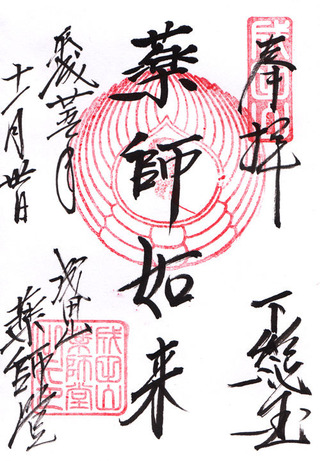 奉拝
成田山
下総国
薬師如来
平成
十一月
成田山
薬師堂
成田山
薬師堂